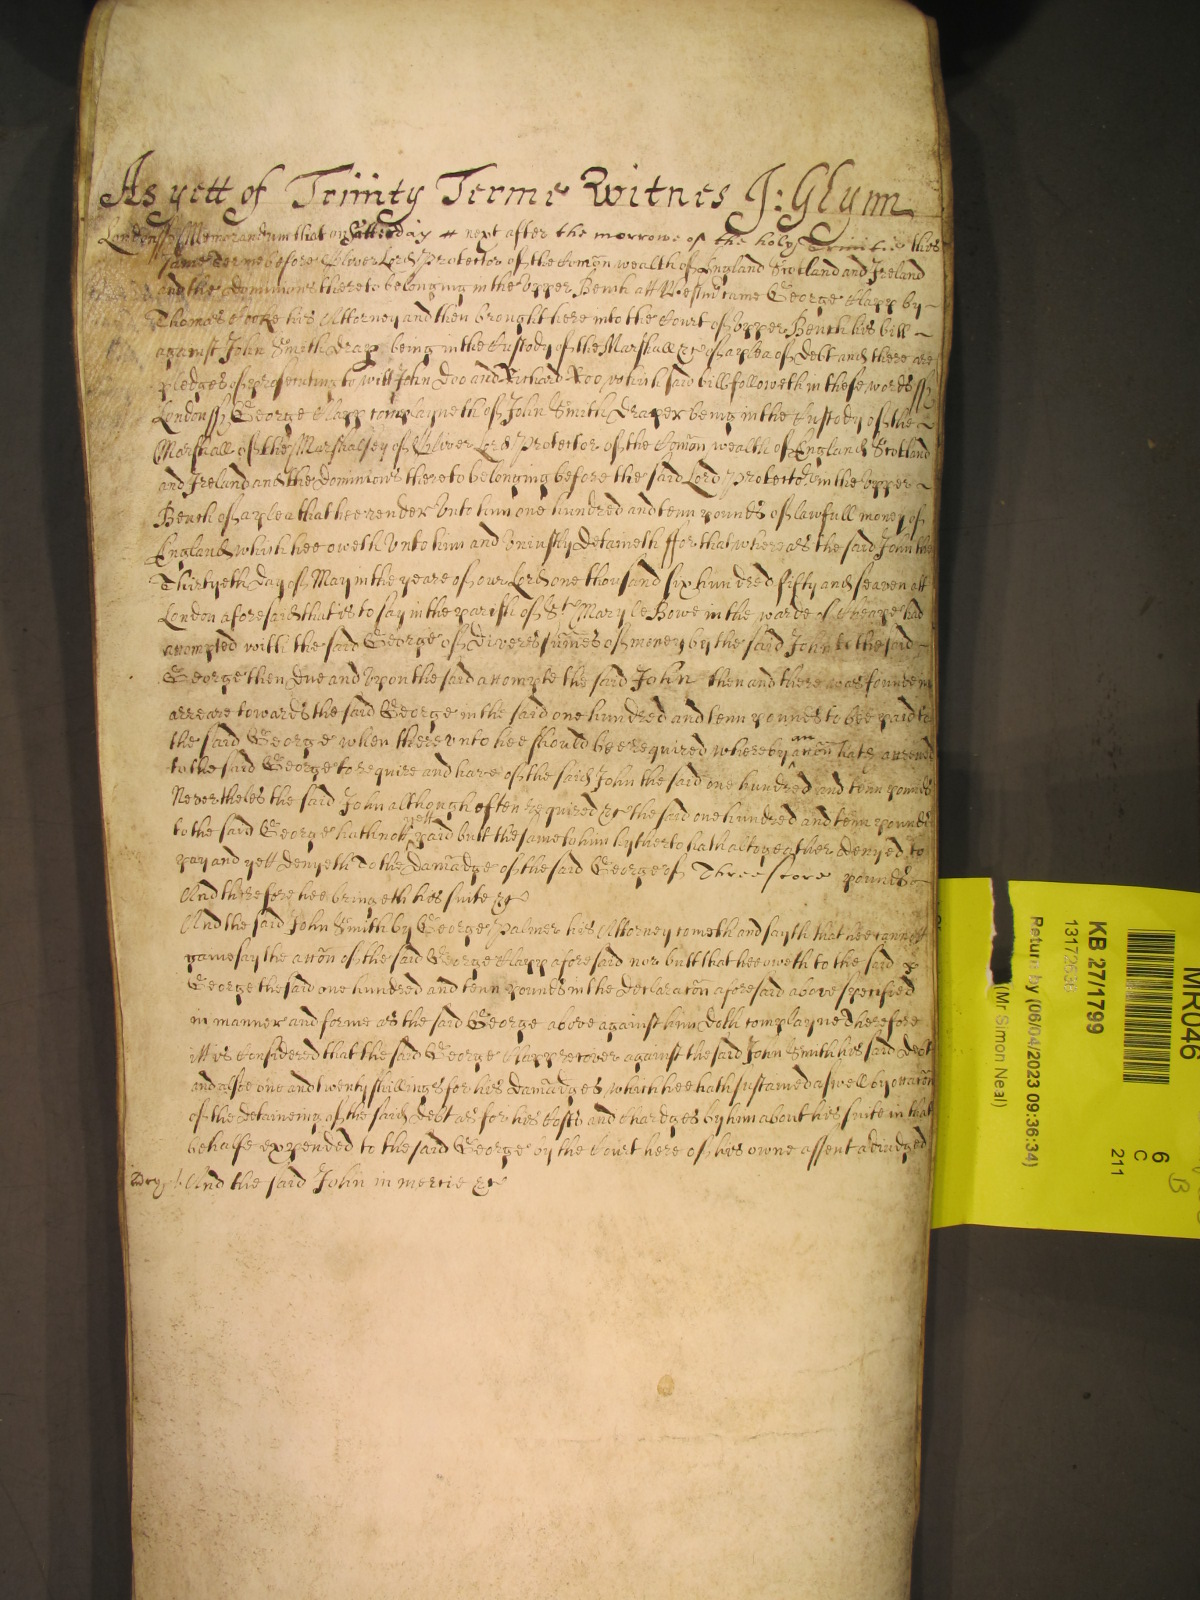 As yett of Trinity Terme Witnes J: Glynn
London ss Memorandum that on Satterday next after the morrowe of the holy Trinitie this
same terme before Oliver Lord Protector of the Comon wealth of England Scotland and Ireland
and the Dominions thereto belonging in the Vpper Bench att Westmr came George Happ by
Thomas Cooke his Attorney and then brought here into the Court of Vpper Bench his bill
against John Smith drap being in the Custody of the Marshall &c of a plea of Debt and there are
pledges of prosecuting to witt John Doo and Richard Roo which said bill followeth in these words ss
London ss George Happ complayneth of John Smith Draper being in the Custody of the
Marshall of the Marshalsey of Oliver Lord Protector of the Comon wealth of England Scotland
and Ireland and the Dominions thereto belonging before the said Lord Protector in the Vpper
Bench of a plea that hee render vnto him one hundred and tenn pounds of lawfull money of
England which hee oweth vnto him and vniustly detaineth ffor that whereas the said John the
Thirtyeth day of May in the yeare of our Lord one thousand six hundred fifty and seaven att
London aforesaid that is to say in the parish of St Mary le Bowe in the warde of Cheape had
accompted with the said George of divers sumes of money by the said John to the said
George then due and vpon the said accompte the said John then and there was founde in
arreare towards the said George in the said one hundred and tenn pounds to bee paid to
the said George when therevnto hee should bee required whereby an accon hath accrued
to the said George to require and have of the said John the said one hundred and tenn pounds
Nevertheles the said John although often required &c the said one hundred and tenn pounds
to the said George hath not yett paid butt the same to him hytherto hath altogeather denyed to
pay and yett denyeth To the Damadge of the said George of Three score pounds
And therefore hee bringeth his suite &c
And the said John Smith by George Palmer his Attorney cometh and sayth that hee cannot
gainesay the accon of the said George Happ aforesaid nor butt that hee oweth to the said
George the said one hundred and tenn pounds in the declaracon aforesaid above specified
in manner and forme as the said George above against him doth complayne Therefore
itt is considered that the said George Happ recover against the said John Smith his said debt
and alsoe one and twenty shillings for his Damadges which hee hath sustained aswell by occacon
of the detaineing of the said debt as for his Costs and Chardges by him about his suite in that
behalfe expended to the said George by the Court here of his owne assent adiudged
And the said John in mercie &c
MR046
KB 27/1799
13172636
Return by (06/04/2023 09:36:34)
(Mr Simon Neal)
6
C
211
B